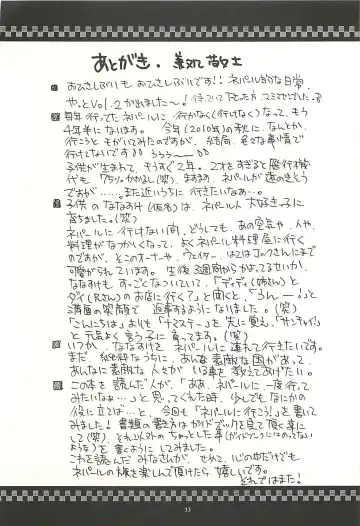 あとがき。
おひさしぶりもおひさしぶりです!! ネパール的な日常、
やっとVol.2が出ました〜! 待っていて下さった方、スミマセンでした。
毎年行ってたネパールに行かなく(行けなく)なって、もう
4年半になります。 今年(2010年)の秋に、なんとか
行こうともがいてみたのですが、結局、色々な事情で
行けてないです うううー
子供が生まれて、もうすぐ2年。2才をすぎると飛行機
代も75%かかるし(笑)、ますます、ネパールが遠のきそう
ですが……。また近いうちに行きたいなぁ…。
子供のななすけ(仮名)は、ネパール人大好きっ子に
育ちました。(笑)
ネパールに行けない間、どうしても、あの空気や、人や、
料理がなつかしくなって、よくネパール料理屋に行く
のですが、そこのオーナーや、ウェイター、はてはコックさんにまで
可愛がられています。 生後3週間からかよってるせいか、
ななすけも、すっごくなついていて、「ディディ(姉さん)と
ダイ(兄さん)のお店に行く?」と聞くと、「うんー。」と
満面の笑顔で 返事するようになりました。(笑)
「こんにちは」よりも「ナマステー」を先に覚え、「サンチャイ!」
と元気よく言う子に育ってます。(笑)
いつか、ななすけを、ネパールに連れて行きたいです。
まだ、純粋なうちに、あんな素敵な国があって、
あんなに素敵な人々がいる事を教えてあげたい。
この本を読んだ人が、「ああ、ネパールに一度行って
みたいなぁ…」と思ってくれた時、少しでもなにかの
役に立てば…と、今回も「ネパールに行こう!」を書いて
みました! 書類の書き方はガイドブックを見て頂く事に
して(笑)、それ以外のちょっとした事(ガイドブックにはのってない
ような)を書くようにしてみました。
これを読んだみなさんが、せめて、心の中だけでも
ネパールの旅を楽しんで頂けたら 嬉しいです。
それではまた!
33